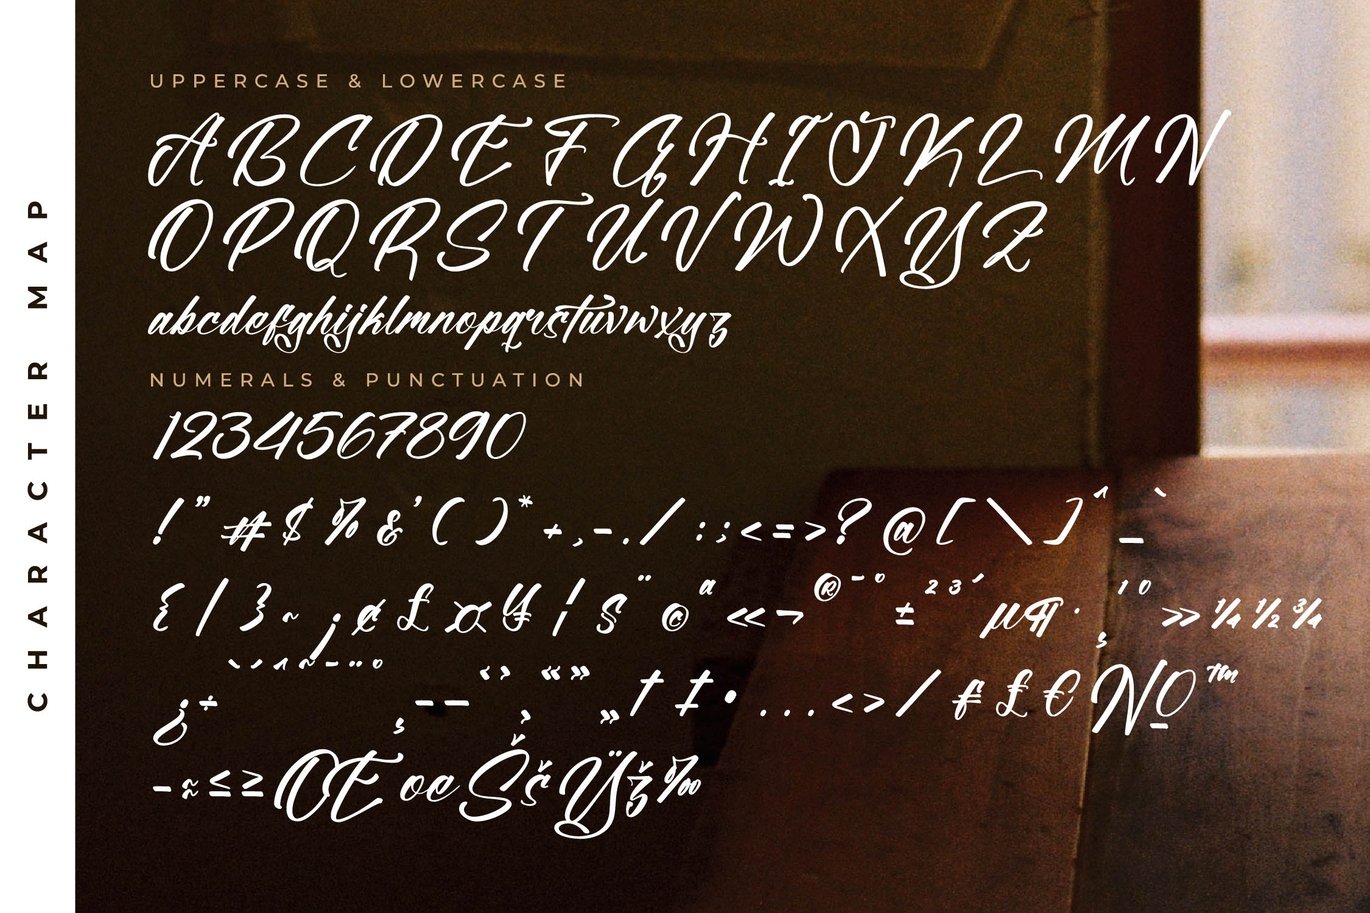 CHARACTER MAP
UPPERCASE & LOWERCASE
ABCDEFGHIJKLMN
OPQRSTUVWXYZ
abcdefghijklmnopqrstuvwxyz
NUMERALS & PUNCTUATION
1234567890
!"#$%&'()*+,-./:;<=>?@[\]^_`
{|}~¡¢£¤¥¦§¨©ª«¬®¯°±²³´µ¶·¸¹º»¼½¾
¿÷ˋˊˆ˜¯¨˚¸–—‘’‚“”„†‡•...‹›⁄₣₤€№™
−≈≤≥ŒœŠšŸž‰